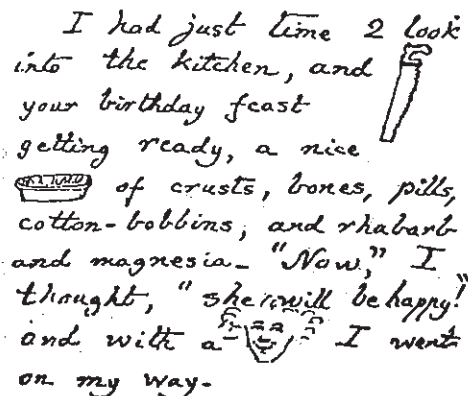 I had just time 2 look
into the kitchen, and
your birthday feast
getting ready, a nice
of crusts, bones, pills,
cotton-bobbins, and rhabarb
and magnesia_ "Now," I
thought, "she will be happy!"
and with a I went
on my way.